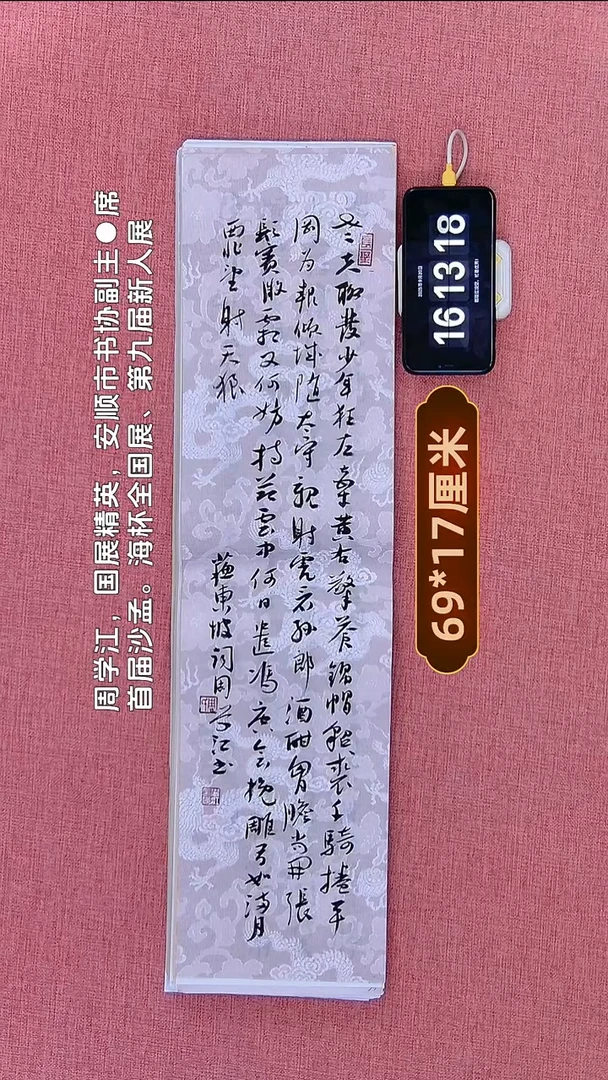 周学江，国展精英，安顺市书协副主●席
首届沙孟。海杯全国展、第九届新人展
老夫聊發少年狂左牽黄右擎蒼錦帽貂裘千騎捲平
岡为報傾城隨太守親射虎看孙郎酒酣胷膽尚開張
鬢微霜又何妨持節雲中何日遣馮唐会挽雕弓如满月
西北望射天狼
蘇東坡詞周学江书
16 13 18
69*17厘米